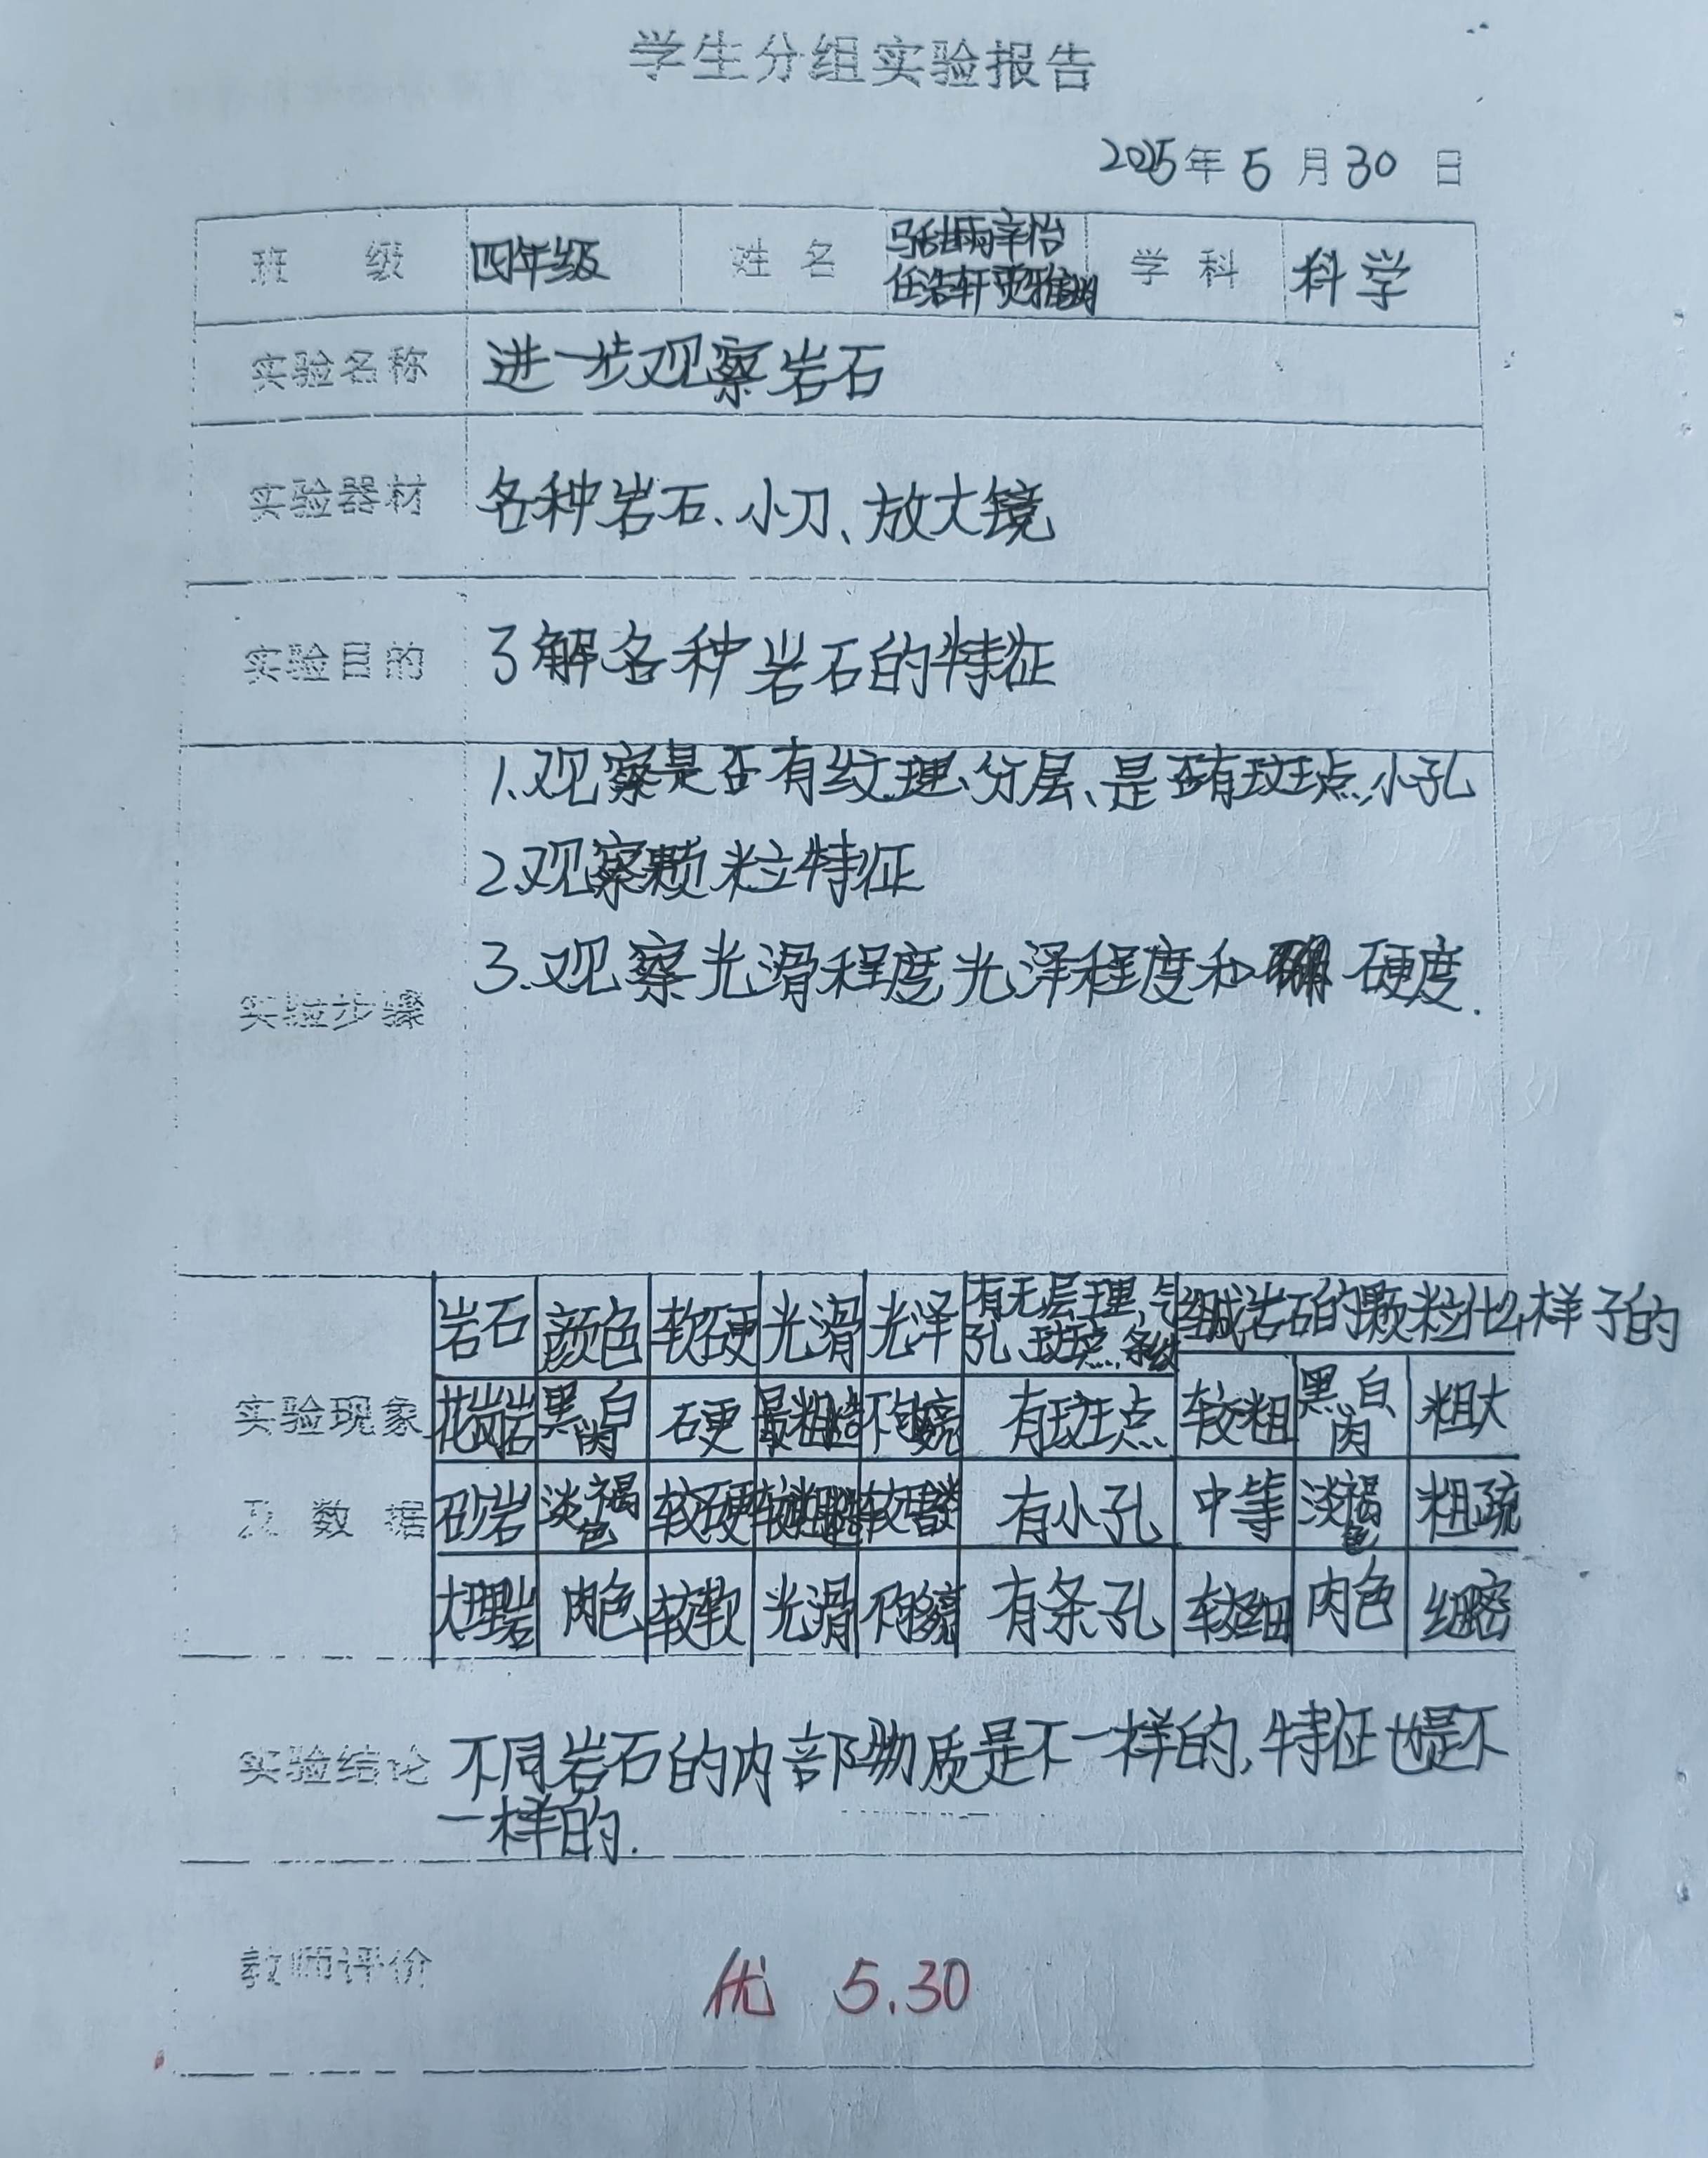 学生分组实验报告
2025年5月30日
班 级 四年级 姓 名 学 科 科学
任浩轩
实验名称 进一步观察岩石
实验器材 各种岩石、小刀、放大镜
实验目的 了解各种岩石的特征
1.观察是否有纹理、分层、是否有斑点,小孔
2.观察颗粒特征
3.观察光滑程度,光泽程度和 硬度.
实验步骤
岩石 颜色 软硬 光滑 光泽 有无层理、气孔、斑点、条纹 组成岩石的颗粒什么样子的
实验现象
花岗岩 黑白肉 硬 最粗糙 不均 有斑点 较粗 黑白肉 粗大
及数据
砂岩 淡褐色 较硬 较粗糙 较 有小孔 中等 淡褐色 粗疏
大理岩 肉色 较软 光滑 有条孔 较细 肉色 细密
实验结论 不同岩石的内部物质是不一样的,特征也是不
一样的.
教师评价 优 5.30